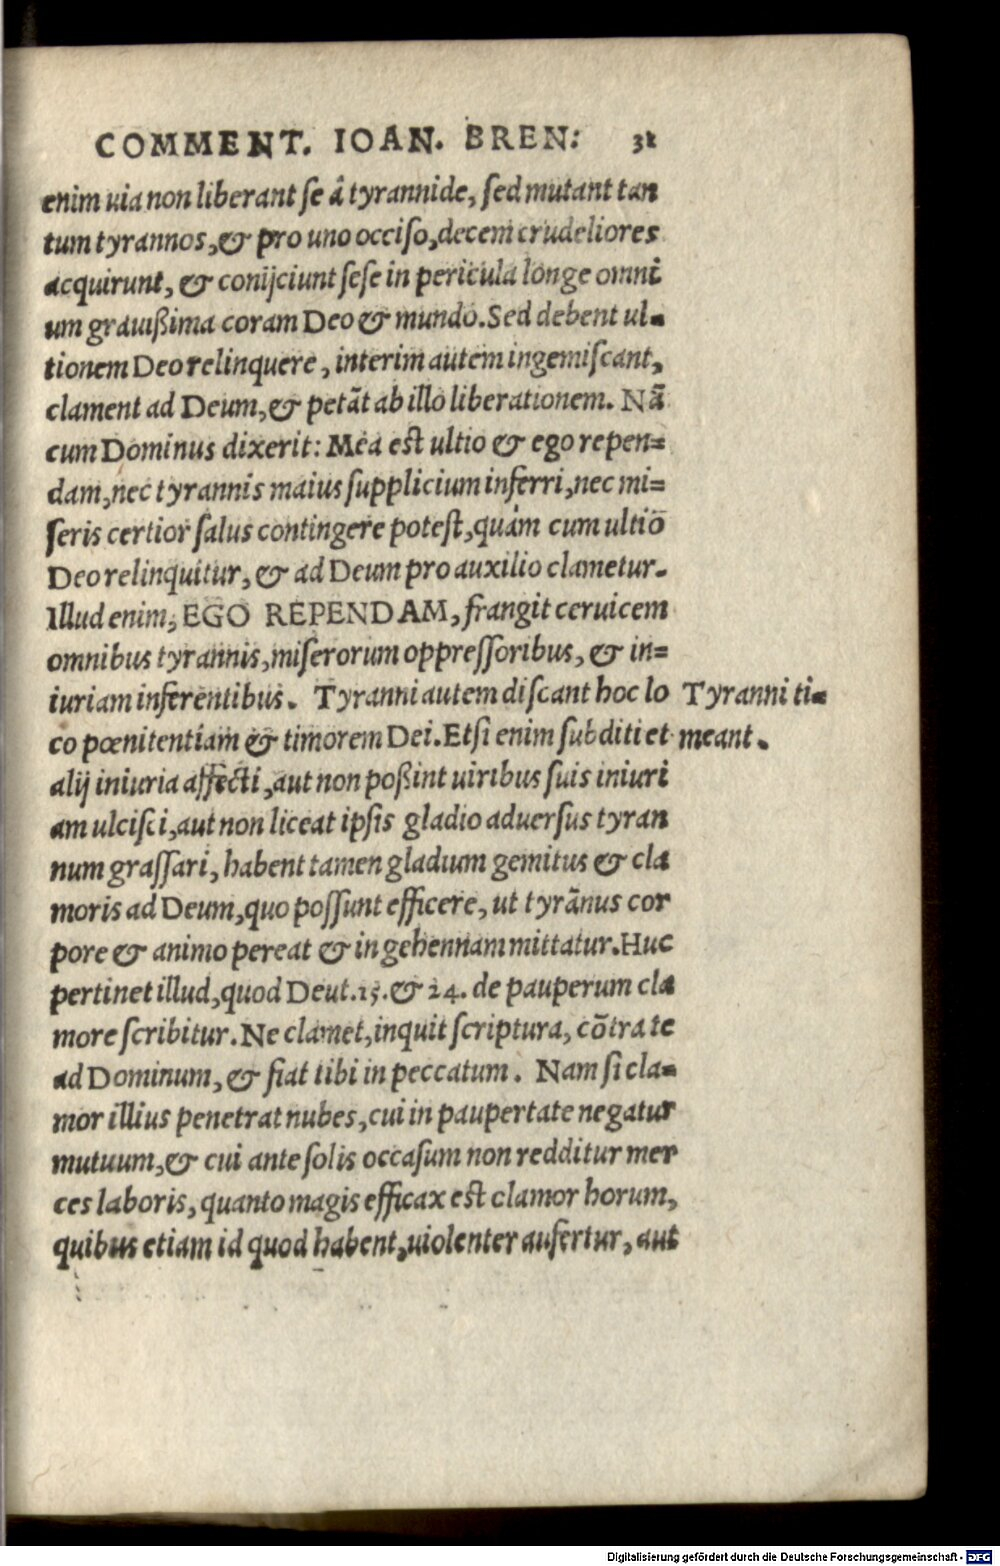 COMMENT. IOAN. BREN: 31
enim uia non liberant se â tyrannide, sed mutant tan
tum tyrannos, & pro uno occiso, decem crudeliores
acquirunt, & conijciunt sese in pericula longe omni
um grauißima coram Deo & mundo. Sed debent ul-
tionem Deo relinquere, interim autem ingemiscant,
clament ad Deum, & petãt ab illo liberationem. Nã
cum Dominus dixerit: Mea est ultio & ego repen=
dam, nec tyrannis maius supplicium inferri, nec mi=
seris certior salus contingere potest, quám cum ultiō
Deo relinquitur, & ad Deum pro auxilio clametur.
Illud enim, EGO REPENDAM, frangit ceruicem
omnibus tyrannis, miserorum oppressoribus, & in=
iuriam inferentibus. Tyranni autem discant hoc lo
co pœnitentiam & timorem Dei. Etsi enim subditi et
Tyranni ti-
meant.
alij iniuria affecti, aut non poßint uiribus suis iniuri
am ulcisci, aut non liceat ipsis gladio aduersus tyran
num grassari, habent tamen gladium gemitus & cla
moris ad Deum, quo possunt efficere, ut tyrãnus cor
pore & animo pereat & in gehennam mittatur. Huc
pertinet illud, quod Deut. 15. & 24. de pauperum cla
more scribitur. Ne clamet, inquit scriptura, cõtra te
ad Dominum, & fiat tibi in peccatum. Nam si cla-
mor illius penetrat nubes, cui in paupertate negatur
mutuum, & cui ante solis occasum non redditur mer
ces laboris, quanto magis efficax est clamor horum,
quibus etiam id quod habent, uiolenter aufertur, aut
Digitalisierung gefördert durch die Deutsche Forschungsgemeinschaft - DFG